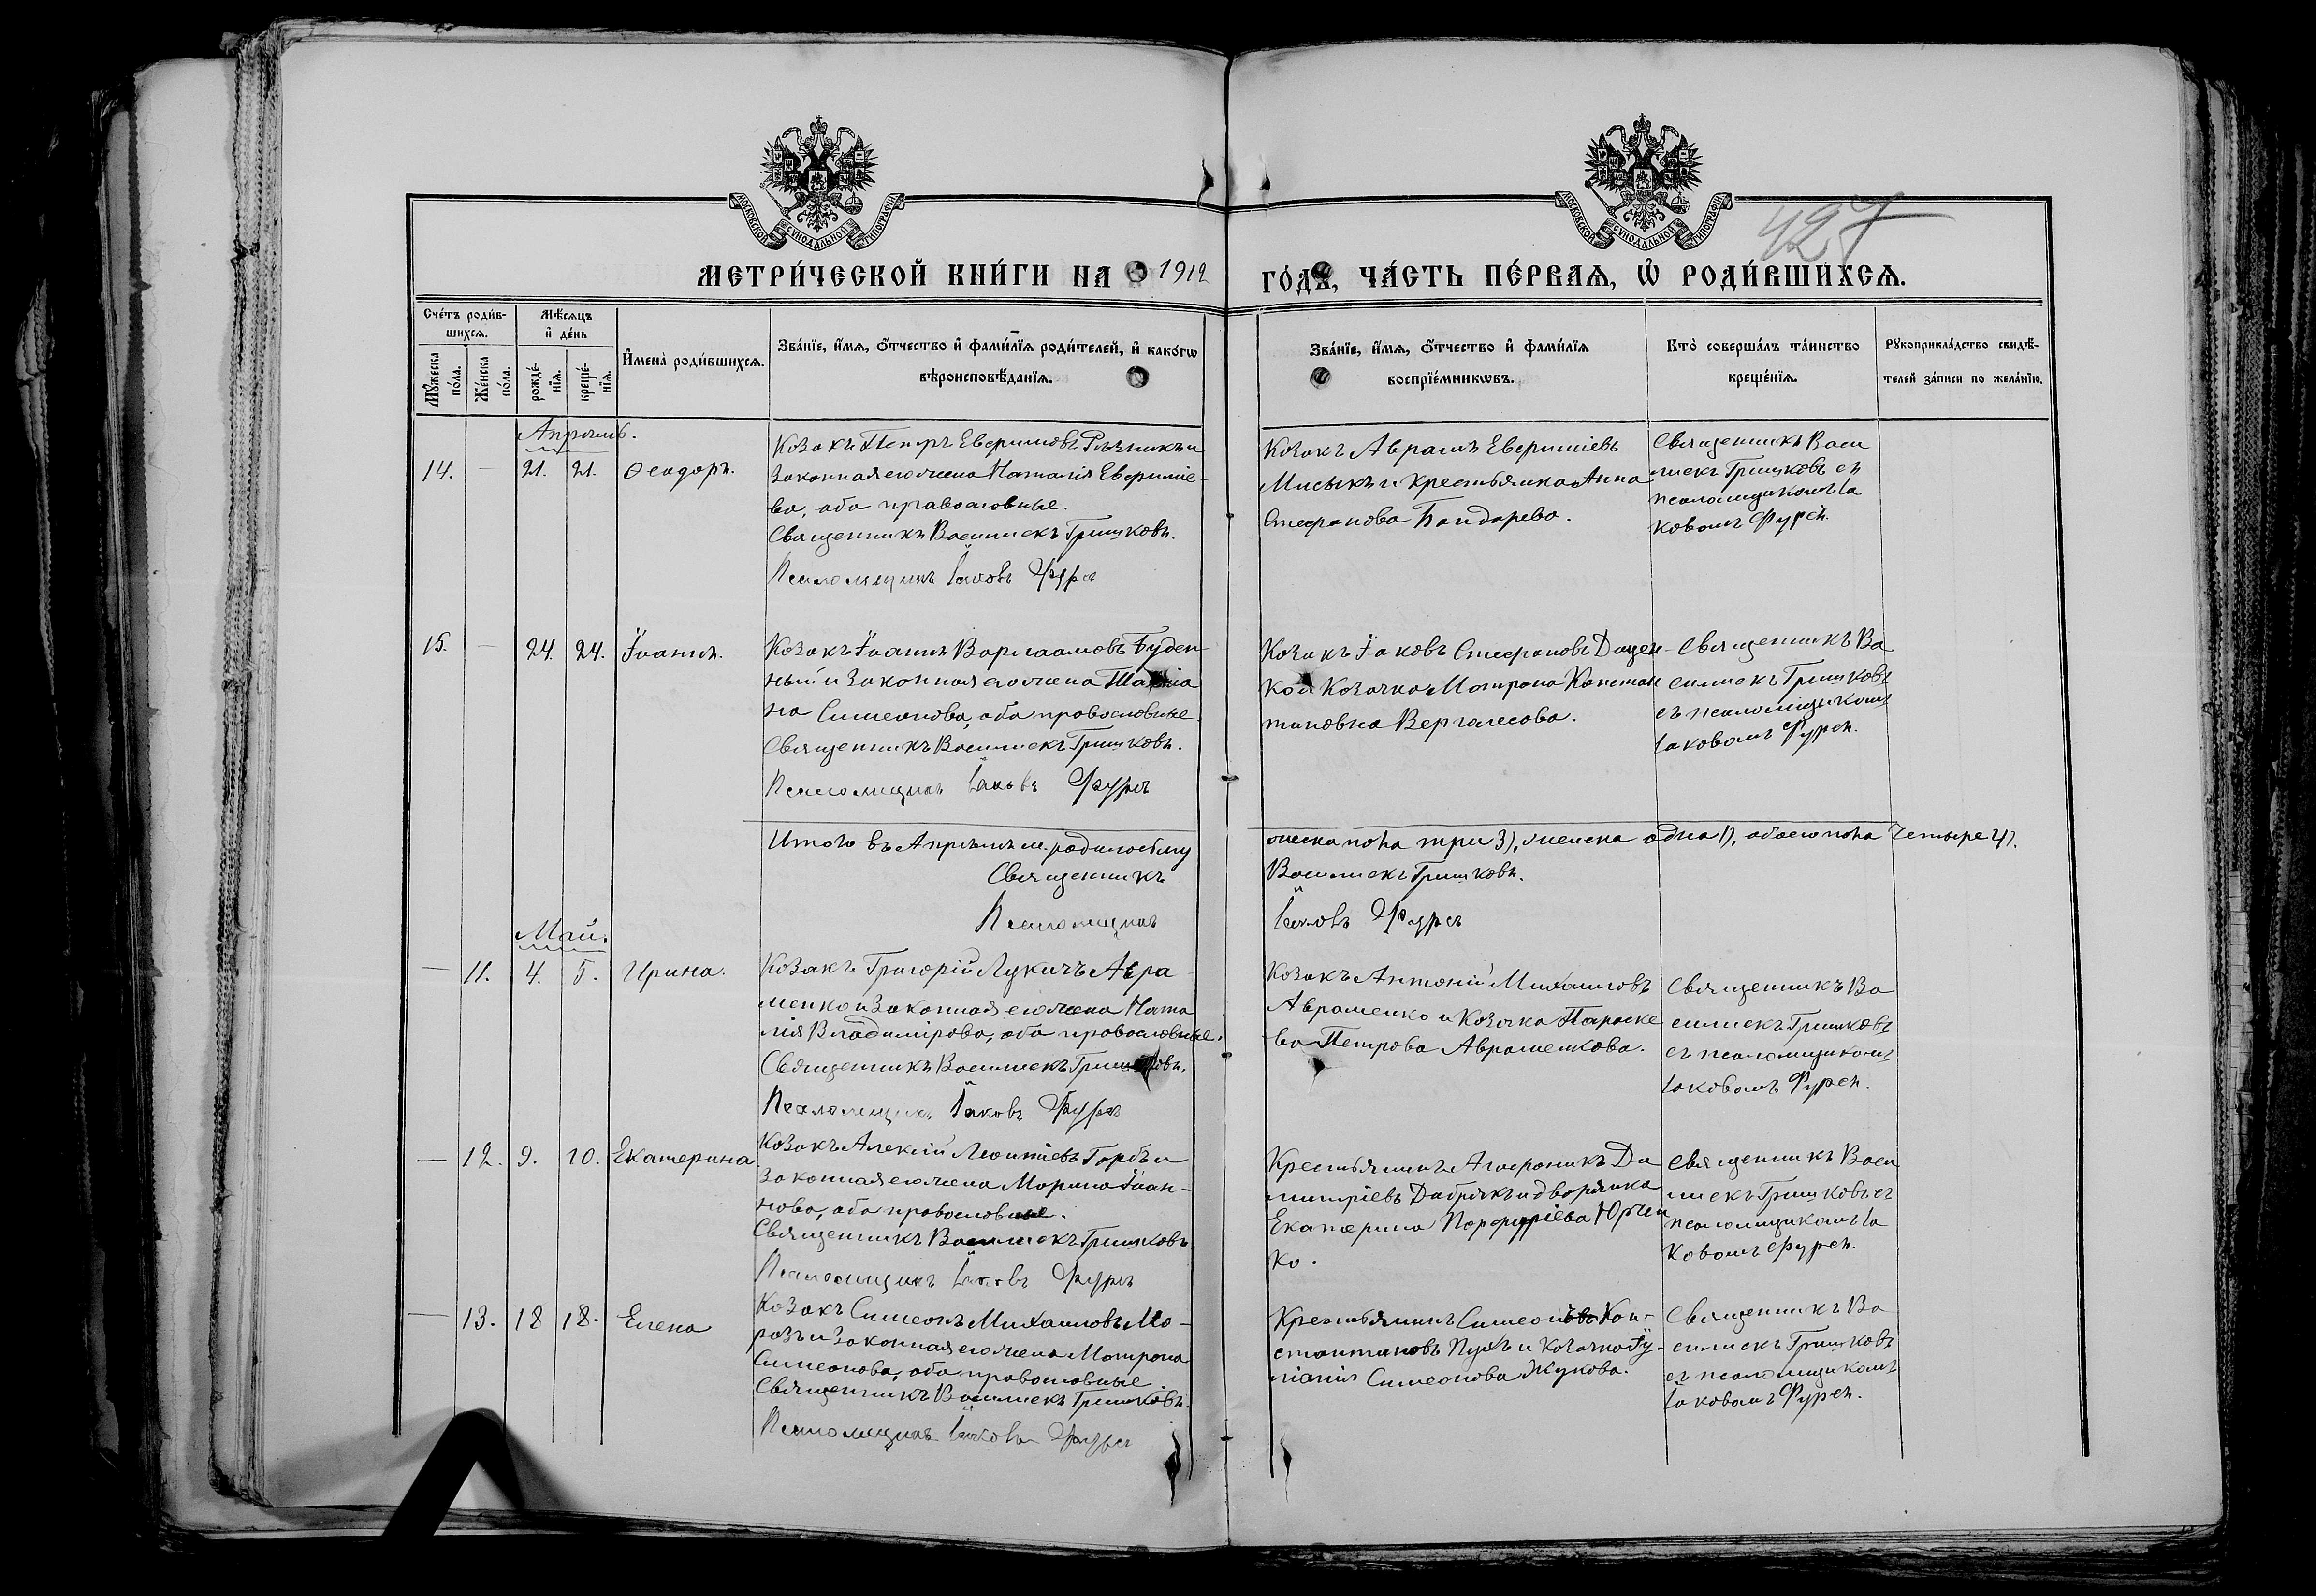 МОСКОВСКОЙ СѴНОДАЛЬНОЙ ТИПОГРАФІИ
МОСКОВСКОЙ СѴНОДАЛЬНОЙ ТИПОГРАФІИ
427
МЕТРИ́ЧЕСКОЙ КНИ́ГИ НА 1912 ГО́ДЪ, ЧА́СТЬ ПЕ́РВАЯ, Ѡ РОДИ́ВШИХСЯ.
Сче́тъ роди́в-
шихся.
Мѣ́сяцъ
и де́нь
Мꙋ́жеска по́ла.
Же́нска по́ла.
рожде́-
нїя.
креще́-
нїя.
И҆мена̀ роди́вшихся.
Зва́нїе, и҆́мя, ѻ҆́тчество и҆ фами́лїя роди́телей, и҆ како́гѡ
вѣроисповѣ́данїя.
Зва́нїе, и҆́мя, ѻ҆́тчество и҆ фами́лїя
воспрїе́мникѡвъ.
Кто̀ соверша́лъ та́инство
креще́нїя.
Рꙋкоприкла́дство свидѣ́-
телей за́писи по жела́нїю.
Апрѣль.
14. — 21. 21. Ѳеодоръ.
Козакъ Петръ Евфимовъ Рѣзникъ и
законная его жена Наталія Евфиміе-
ва, оба православные.
Священникъ Василискъ Гришковъ.
Псаломщикъ Іаковъ Фурсъ
Козакъ Аврамъ Евфиміевъ
Мисыкъ и крестьянка Анна
Стефанова Бондарева.
Священникъ Васи
лискъ Гришковъ съ
псаломщикомъ Іа
ковомъ Фурсъ.
15. — 24. 24. Іоаннъ.
Козакъ Іоаннъ Варлаамовъ Буден-
ный и законная его жена Татіа
на Симеонова, оба православные.
Священникъ Василискъ Гришковъ.
Псаломщикъ Іаковъ Фурсъ
Козакъ Іаковъ Стефановъ Доцен-
ко и козачка Мотрона Констан
тиновна Вергалесова.
Священникъ Ва
силискъ Гришковъ
съ псаломщикомъ
Іаковомъ Фурсъ.
Итого въ Апрѣлѣ м. родилось му жеска пола три 3), женска одна 1), обоего пола четыре 4).
Священникъ Василискъ Гришковъ.
Псаломщикъ Іаковъ Фурсъ
Май.
— 11. 4. 5. Ирина.
Козакъ Григорій Лукичъ Авра
менко и законная его жена Ната
лія Владимірова, оба православные.
Священникъ Василискъ Гришковъ.
Псаломщикъ Іаковъ Фурсъ
Козакъ Антоній Михаиловъ
Авраменко и козачка Параске
ва Петрова Авраменкова.
Священникъ Ва
силискъ Гришковъ
съ псаломщикомъ
Іаковомъ Фурсъ.
— 12. 9. 10. Екатерина
Козакъ Алексій Леонтіевъ Горбъ и
законная его жена Марина Іоан-
нова, оба православные.
Священникъ Василискъ Гришковъ
Псаломщикъ Іаковъ Фурсъ
Крестьянинъ Агафоникъ Ди
митріевъ и дворянка
Екатерина Порфиріева Юрчен
ко.
Священникъ Васи
лискъ Гришковъ съ
псаломщикомъ Іа
ковомъ Фурсъ.
— 13. 18 18. Елена
Козакъ Симеонъ Михаиловъ Мо-
розъ и законная его жена Мотрона
Симеонова, оба православные
Священникъ Василискъ Гришковъ.
Псаломщикъ Іаковъ Фурсъ
Крестьянинъ Симеонъ Кон-
стантиновъ Пухъ и козачка Іу-
ліанія Симеонова Жукова.
Священникъ Ва
силискъ Гришковъ
съ псаломщикомъ
Іаковомъ Фурсъ.